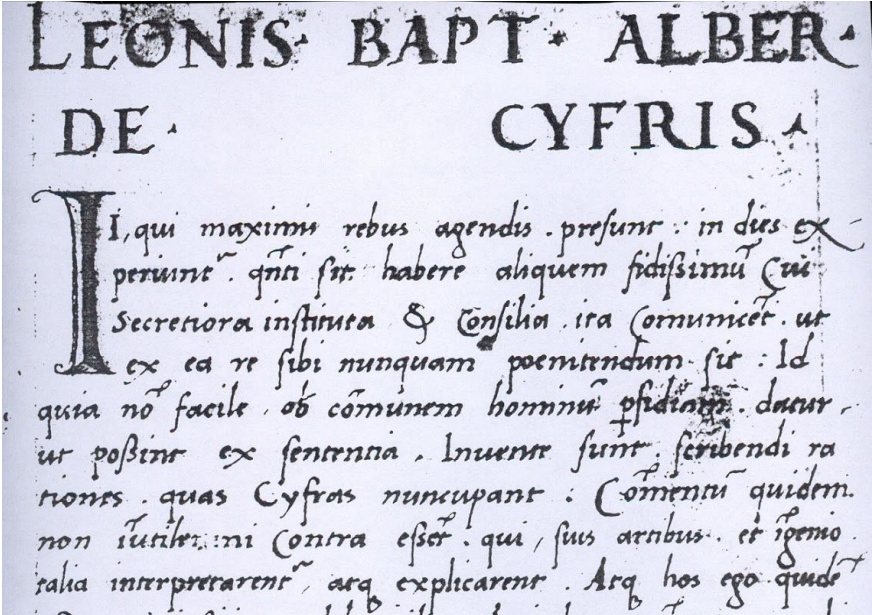 LEONIS · BAPT · ALBER ·
DE · CYFRIS ·
II, qui maximis rebus agendis . presunt : in dies ex-
periunt᷒ . qn̄ti sit habere aliquem fidissimū Cui
Secretiora instituta & Consilia ita Comunicēt . ut
ex ea re sibi nunquam poenitendum sit : Id
quia nō facile . ob cōmunem hominū ꝑfidiam . datur ,
ut possint ex sententia . Inuente sunt . scribendi ra
tiones . quas Cyfras nuncupant : Cōmentū quidem .
non īutile: ni Contra essēt . qui , suis artibus . et īgenio
talia interpretarent᷒ , atq explicarent . Atq hos ego quidē